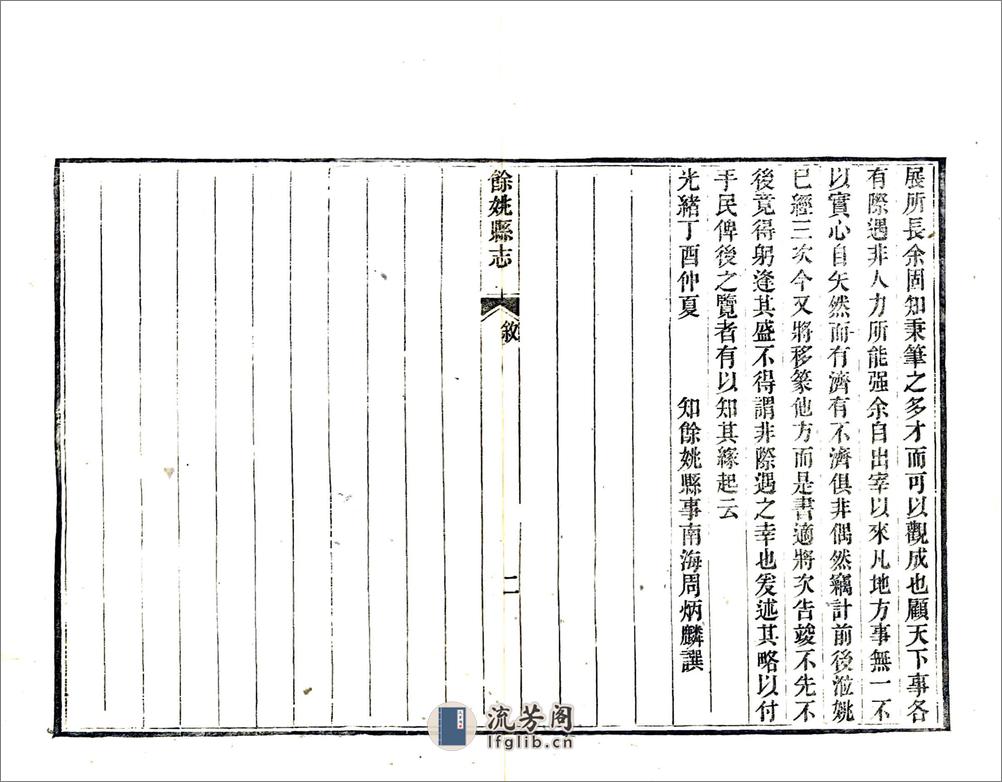 展所長余固知秉筆之多才而可以觀成也顧天下事各
有際遇非人力所能强余自出宰以來凡地方事無一不
以實心自矢然而有濟有不濟俱非偶然竊計前後涖姚
已經三次今又將移篆他方而是書適將次告竣不先不
後竟得躬逢其盛不得謂非際遇之幸也爰述其略以付
手民俾後之覽者有以知其緣起云
光緒丁酉仲夏 知餘姚縣事南海周炳麟譔
餘姚縣志 敘 二
流芳阁
lfglib.cn